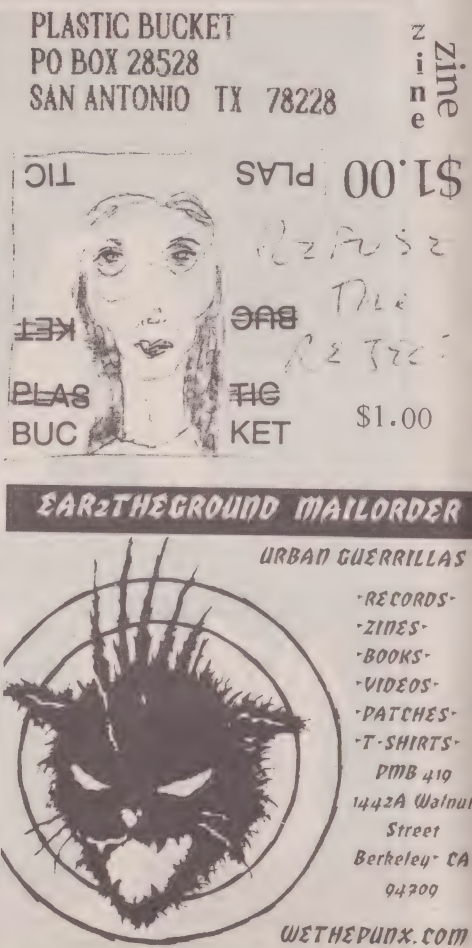 PLASTIC BUCKET
PO BOX 28528
SAN ANTONIO TX 78228
zine
zine
TIC
PLAS
$1.00
KET
BUC
PLAS
TIC
BUC
KET
$1.00
EAR2THEGROUND MAILORDER
URBAN GUERRILLAS
-RECORDS-
-ZINES-
-BOOKS-
-VIDEOS-
-PATCHES-
-T-SHIRTS-
PMB 419
1442A Walnut
Street
Berkeley- CA
94709
WETHEPUNX.COM